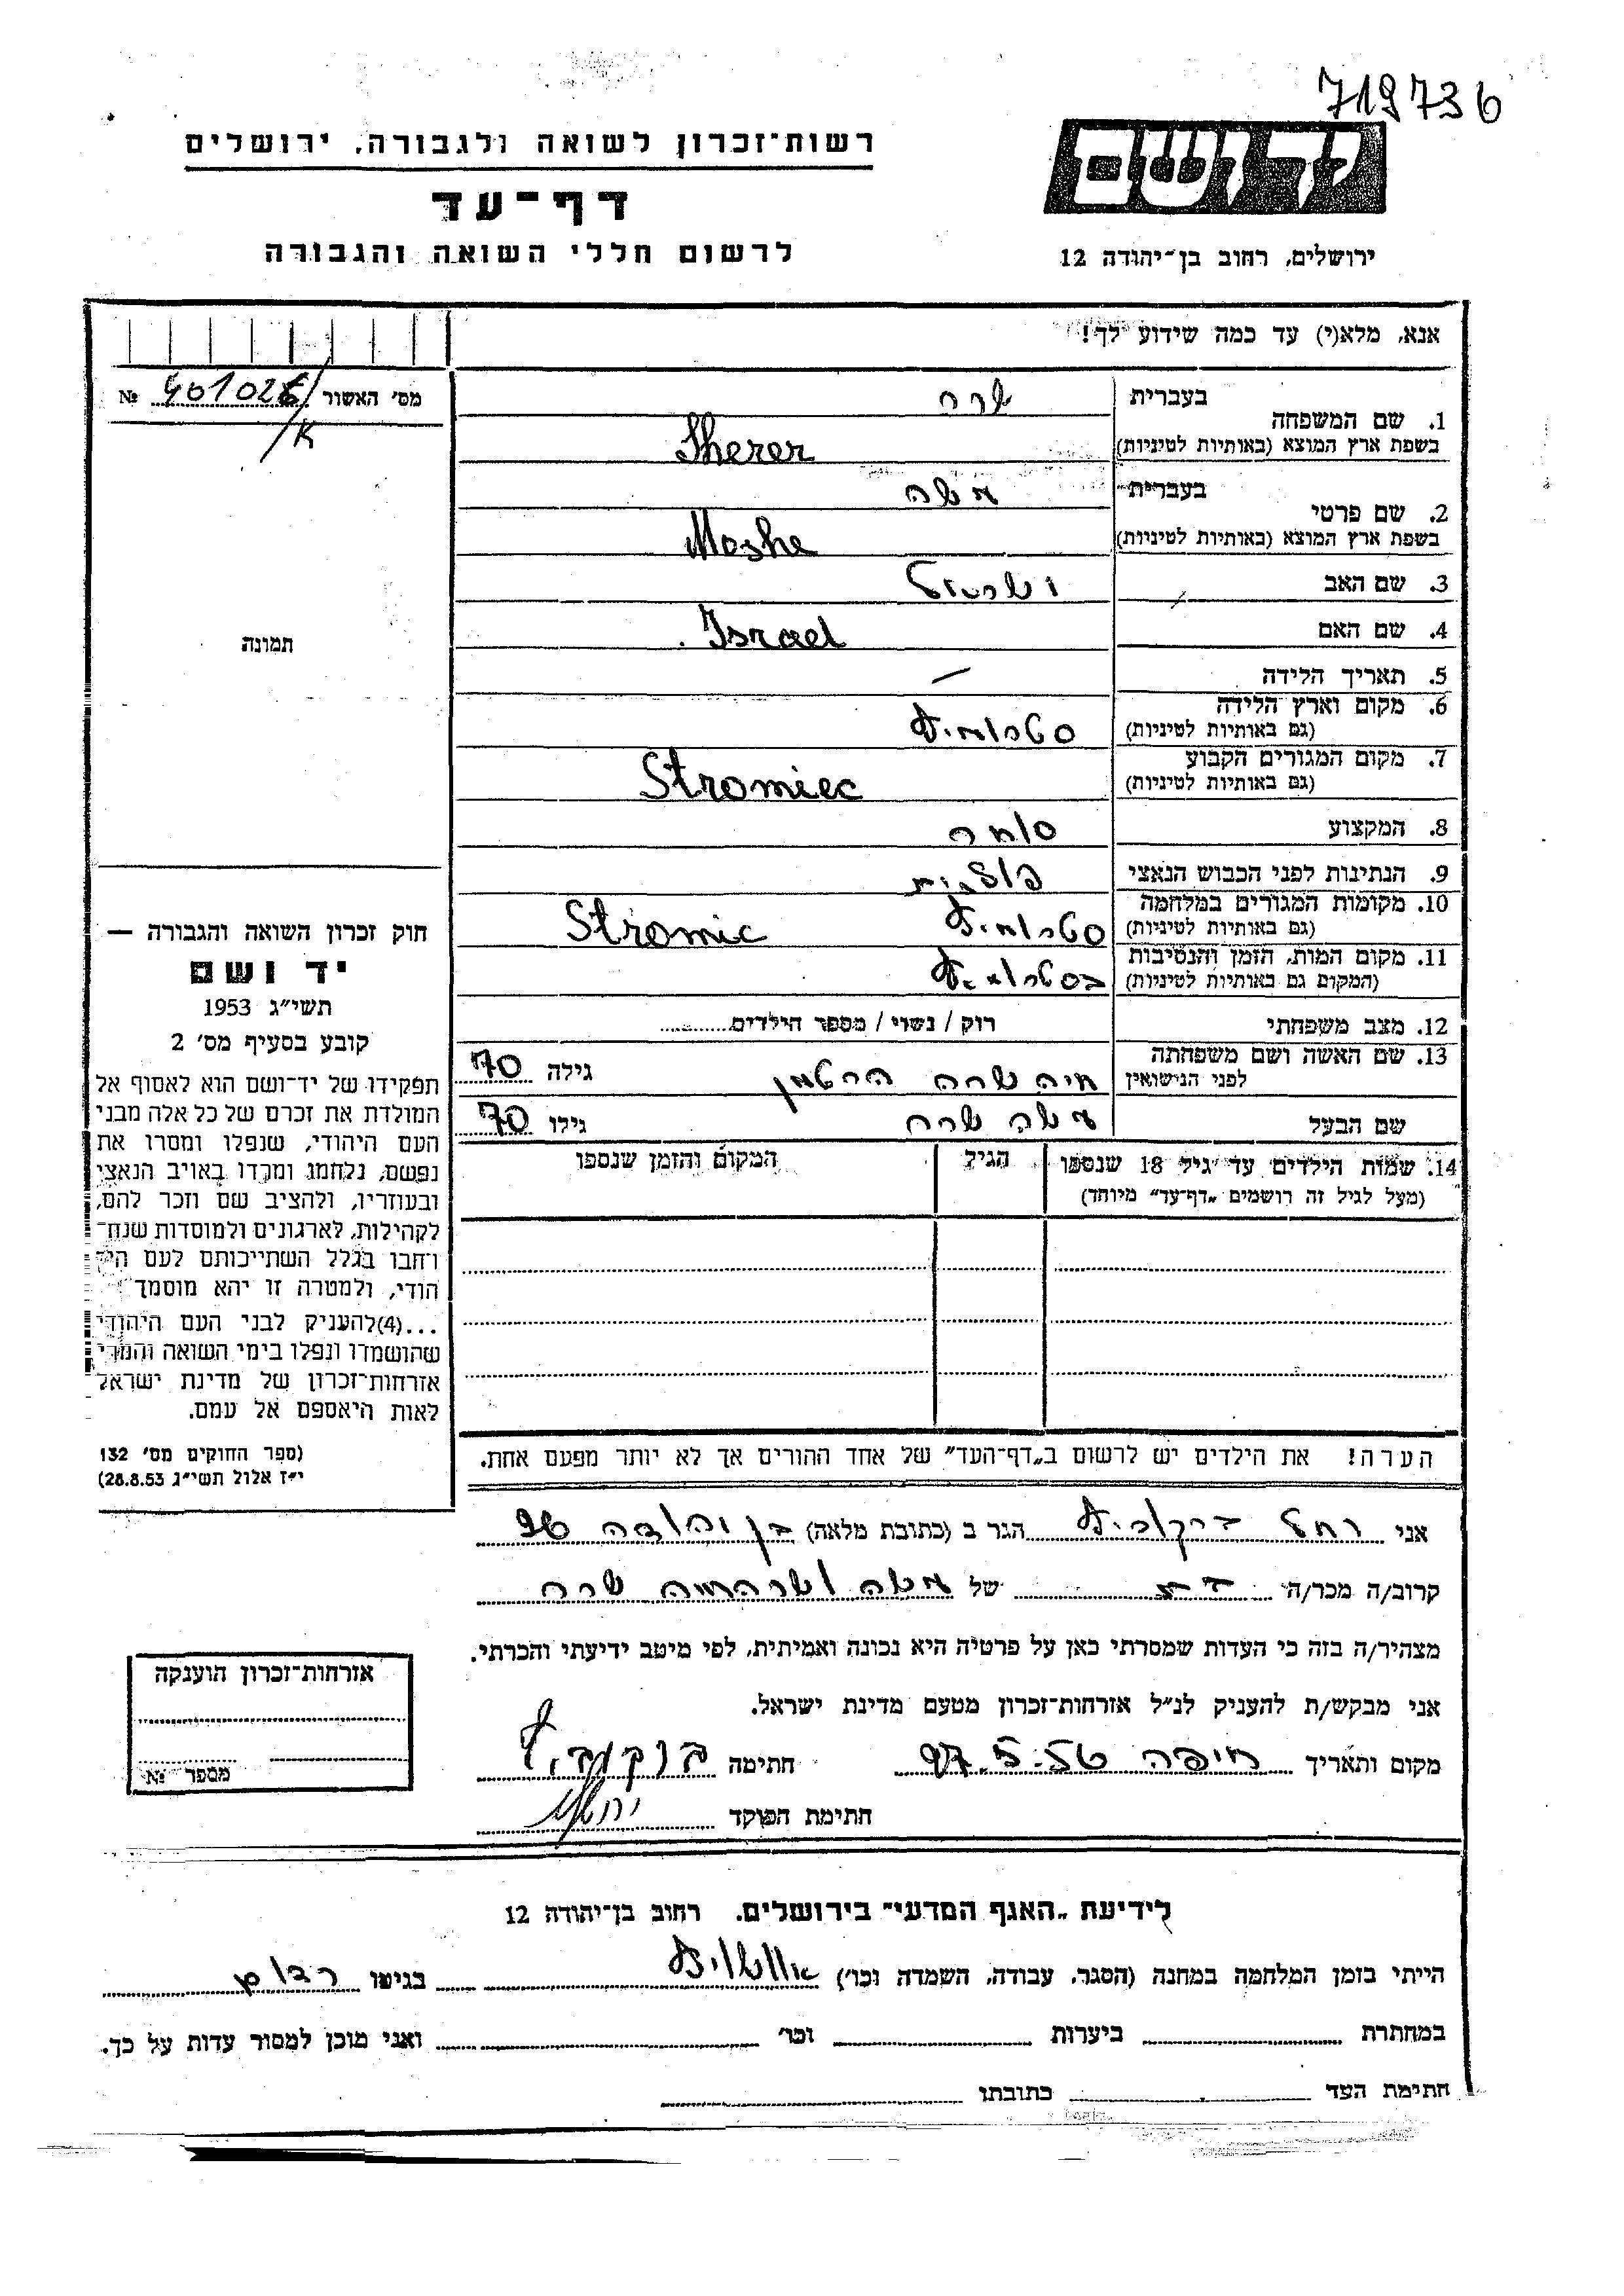 719736
יד ושם
רשות־זכרון לשואה ולגבורה, ירושלים
דף־עד
לרשום חללי השואה והגבורה
ירושלים, רחוב בן־יהודה 12
אנא, מלא(י) עד כמה שידוע לך!
מס׳ האשור № 401026/א
תמונה
1. שם המשפחה בעברית שרר
בשפת ארץ המוצא (באותיות לטיניות) Sherer
2. שם פרטי בעברית משה
בשפת ארץ המוצא (באותיות לטיניות) Moshe
3. שם האב ישראל
4. שם האם Israel
5. תאריך הלידה —
6. מקום וארץ הלידה
(גם באותיות לטיניות) סטרומיץ
7. מקום המגורים הקבוע
(גם באותיות לטיניות) Stromiec
8. המקצוע סוחר
9. הנתינות לפני הכבוש הנאצי פולנית
10. מקומות המגורים במלחמה
(גם באותיות לטיניות) סטרומיץ Stromic
11. מקום המות, הזמן והנסיבות
(המקום גם באותיות לטיניות) בסטרומיץ
12. מצב משפחתי רוק / נשוי / מספר הילדים
13. שם האשה ושם משפחתה
לפני הנישואין חיה שרה הרטמן גילה 70
שם הבעל משה שרר גילו 70
14. שמות הילדים עד גיל 18 שנספו הגיל המקום והזמן שנספו
(מעל לגיל זה רושמים „דף־עד״ מיוחד)
הערה! את הילדים יש לרשום ב„דף־העד״ של אחד ההורים אך לא יותר מפעם אחת.
חוק זכרון השואה והגבורה —
יד ושם
תשי״ג 1953
קובע בסעיף מס׳ 2
תפקידו של יד־ושם הוא לאסוף אל
המולדת את זכרם של כל אלה מבני
העם היהודי, שנפלו ומסרו את
נפשם, נלחמו ומרדו באויב הנאצי
ובעוזריו, ולהציב שם וזכר להם,
לקהילות, לארגונים ולמוסדות שנח־
רבו בגלל השתייכותם לעם היה־
הודי, ולמטרה זו יהא מוסמך
...(4)להעניק לבני העם היהודי
שהושמדו ונפלו בימי השואה והמרי
אזרחות־זכרון של מדינת ישראל
לאות היאספם אל עמם.
(ספר החוקים מס׳ 132
י״ז אלול תשי״ג 28.8.53)
אני רחל ברקוביץ הגר ב (כתובת מלאה) בן יהודה
קרוב/ה מכר/ה בת של משה שרר
מצהיר/ה בזה כי העדות שמסרתי כאן על פרטיה היא נכונה ואמיתית, לפי מיטב ידיעתי והכרתי.
אני מבקש/ת להעניק לנ״ל אזרחות־זכרון מטעם מדינת ישראל.
מקום ותאריך חיפה חתימה ברקוביץ
חתימת הפוקד
אזרחות־זכרון הוענקה
מספר №
לידיעת „האגף המדעי״ בירושלים, רחוב בן־יהודה 12
הייתי בזמן המלחמה במחנה (הסגר, עבודה, השמדה וכו׳) אושוויץ בגיטו רדום
במחתרת ביערות וכו׳ ואני מוכן למסור עדות על כך.
חתימת העד כתובתו